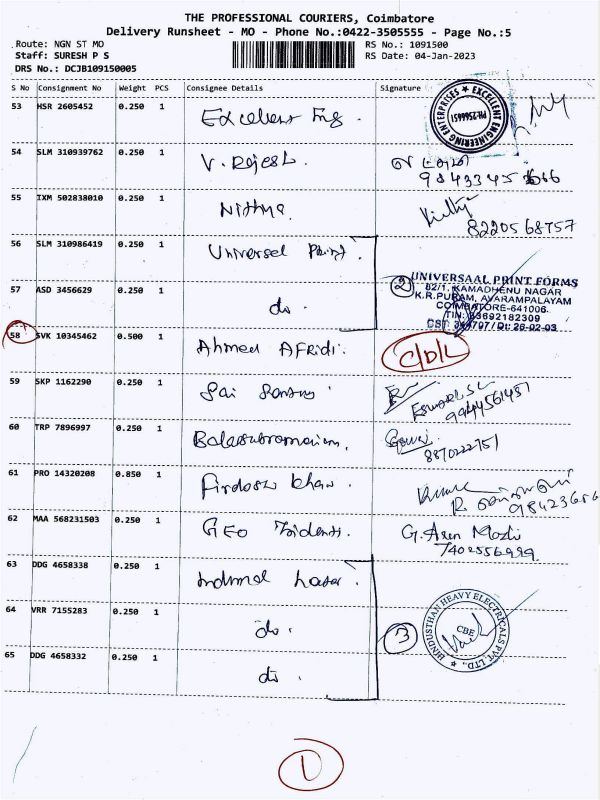 THE PROFESSIONAL COURIERS, Coimbatore
Delivery Runsheet - MO - Phone No.:0422-3505555 - Page No.:5
Route: NGN ST MO
RS No.: 1091500
Staff: SURESH P S
RS Date: 04-Jan-2023
DRS No.: DCJB109150005
S No Consignment No Weight PCS Consignee Details Signature
53 HSR 2605452 0.250 1 Excellent Eng. EXCELLENT ENGINEERING ENTERPRISES PH:2566651
54 SLM 310939762 0.250 1 V. Rajesh.
55 IXM 502838010 0.250 1 Nithya. 8220568757
56 SLM 310986419 0.250 1 Universel Print.
57 ASD 3456629 0.250 1 do. 2
UNIVERSAAL PRINT FORMS
82/1, KAMADHENU NAGAR
K.R.PURAM, AVARAMPALAYAM
COIMBATORE-641006.
TIN: 33692182309
58 SVK 10345462 0.500 1 Ahmed AFRidi. C/D/L
59 SKP 1162290 0.250 1 Sai 9944561451
60 TRP 7896997 0.250 1 Balasubramanium. Gowri 8870222751
61 PRO 14320208 0.850 1 Firdosw khan. Kumar
62 MAA 568231503 0.250 1 GEO Tridents. G. Arun Mozhi
7402556999.
63 DDG 4658338 0.250 1
64 VRR 7155283 0.250 1 do. 3 HINDUSTHAN HEAVY ELECTRICALS PVT. LTD., CBE
65 DDG 4658332 0.250 1 do.
1